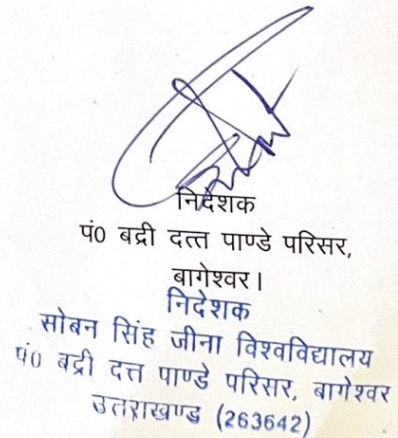 निदेशक
पं0 बद्री दत्त पाण्डे परिसर,
बागेश्वर।
निदेशक
सोबन सिंह जीना विश्वविद्यालय
पं0 बद्री दत्त पाण्डे परिसर, बागेश्वर
उत्तराखण्ड (263642)